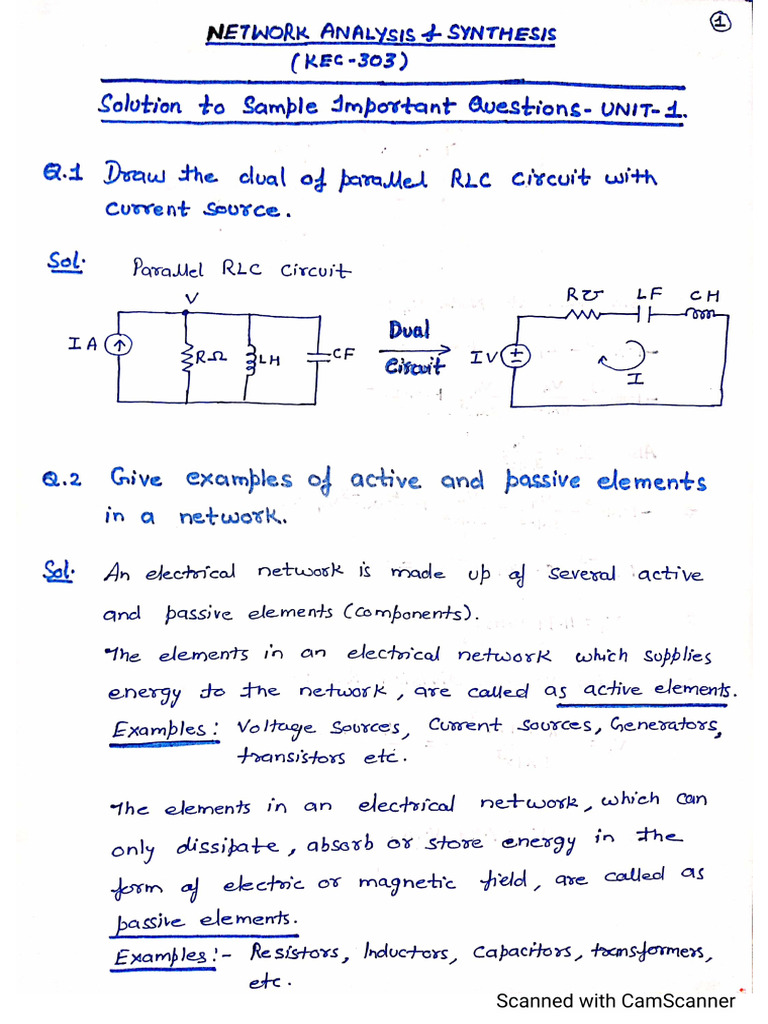 1
NETWORK ANALYSIS & SYNTHESIS
(KEC-303)
Solution to Sample Important Questions- UNIT-1.
Q.1 Draw the dual of parallel RLC circuit with
current source.
Sol. Parallel RLC Circuit
V
I A
RΩ
LH
CF
Dual
Circuit
R℧ LF CH
I V
I
Q.2 Give examples of active and passive elements
in a network.
Sol. An electrical network is made up of several active
and passive elements (components).
The elements in an electrical network which supplies
energy to the network, are called as active elements.
Examples: Voltage Sources, Current sources, Generators,
transistors etc.
The elements in an electrical network, which can
only dissipate, absorb or store energy in the
form of electric or magnetic field, are called as
passive elements.
Examples:- Resistors, Inductors, Capacitors, transformers,
etc.
Scanned with CamScanner